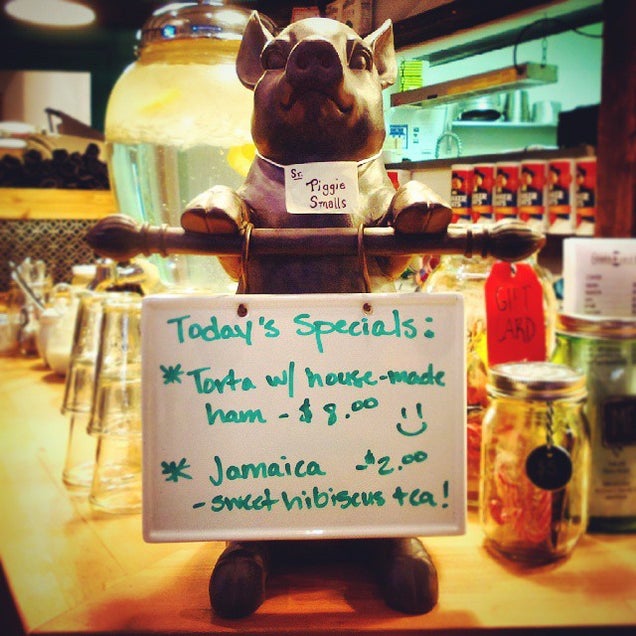 Sr.
Piggie
Smalls
Today's Specials:
* Torta w/ house-made
ham - $8.00
* Jamaica - $2.00
- sweet hibiscus tea!
GIFT
CARD
$5